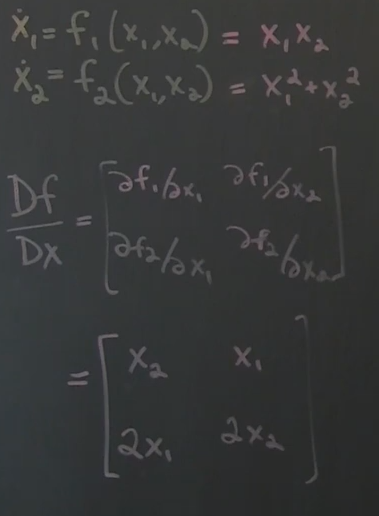 ẋ₁ = f₁(x₁,x₂) = x₁x₂
ẋ₂ = f₂(x₁,x₂) = x₁² + x₂²
Df/Dx = [∂f₁/∂x₁ ∂f₁/∂x₂
∂f₂/∂x₁ ∂f₂/∂x₂]
= [x₂ x₁
2x₁ 2x₂]